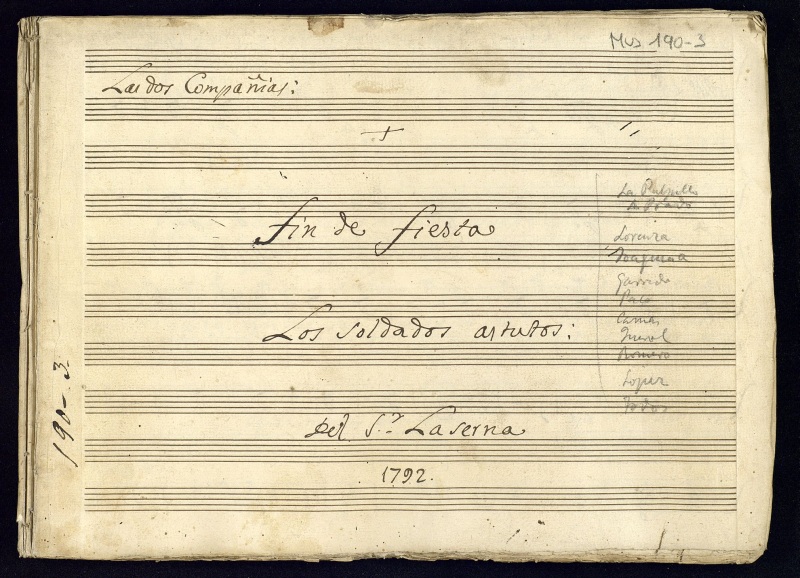 Mus 190-3
Las dos Compañías:
fin de fiesta
Los soldados astutos:
Del S.r Laserna
1792.
190-3
La Pulpillo
Prado
Lorenza
Joaquina
Garrido
Paco
Camas
Querol
Romero
Lopez
Todos